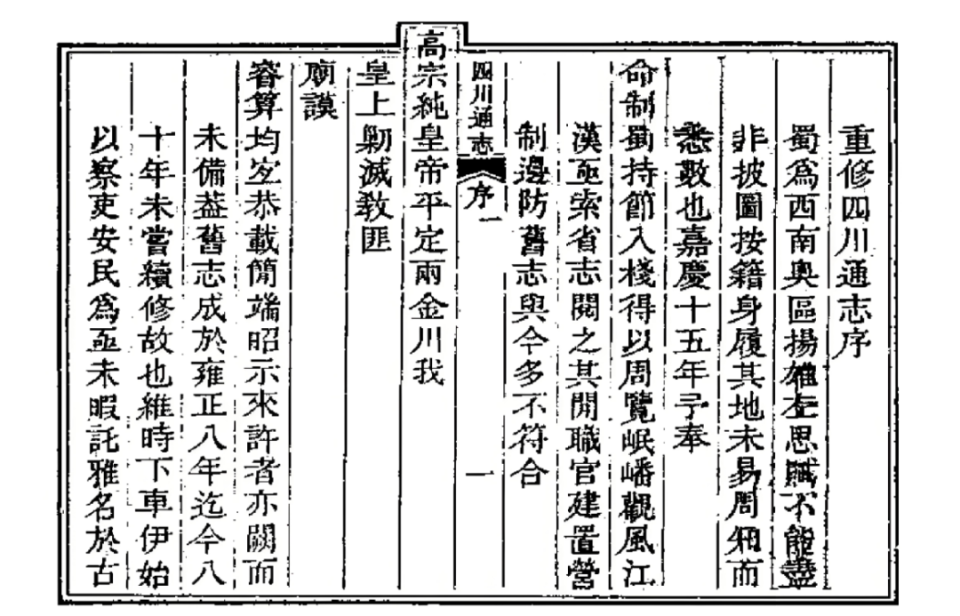 重修四川通志序
蜀爲西南奧區揚雄左思賦不能盡
非披圖按籍身履其地未易周知而
悉數也嘉慶十五年予奉
命制蜀持節入棧得以周覽岷嶓觀風江
漢亟索省志閱之其閒職官建置營
制邊防舊志與今多不符合
四川通志 序一 一
高宗純皇帝平定兩金川我
皇上勦滅敎匪
廟謨
睿算均宐恭載簡端昭示來許者亦闕而
未備葢舊志成於雍正八年迄今八
十年未嘗續修故也維時下車伊始
以察吏安民爲亟未暇託雅名於古